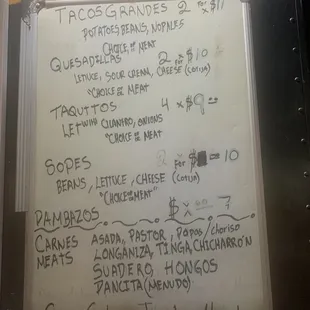 TACOS GRANDES 2 FOR x $11
POTATOES BEANS, NOPALES
CHOICE OF MEAT
QUESADILLAS 2 x $10
LETUCE, SOUR CREAM, CHEESE (COTIJA)
"CHOICE OF MEAT
TAQUITOS 4 x $9
CILANTRO, ONIONS
"CHOICE OF MEAT
SOPES 2 FOR $ 10
BEANS, LETTUCE, CHEESE (COTIJA)
"CHOICE OF MEAT"
PAMBAZOS $ 7
CARNES ASADA, PASTOR, PAPAS/chorizo
MEATS LONGANIZA, TINGA, CHICHARRÓN
SUADERO, HONGOS
PANCITA (MENUDO)